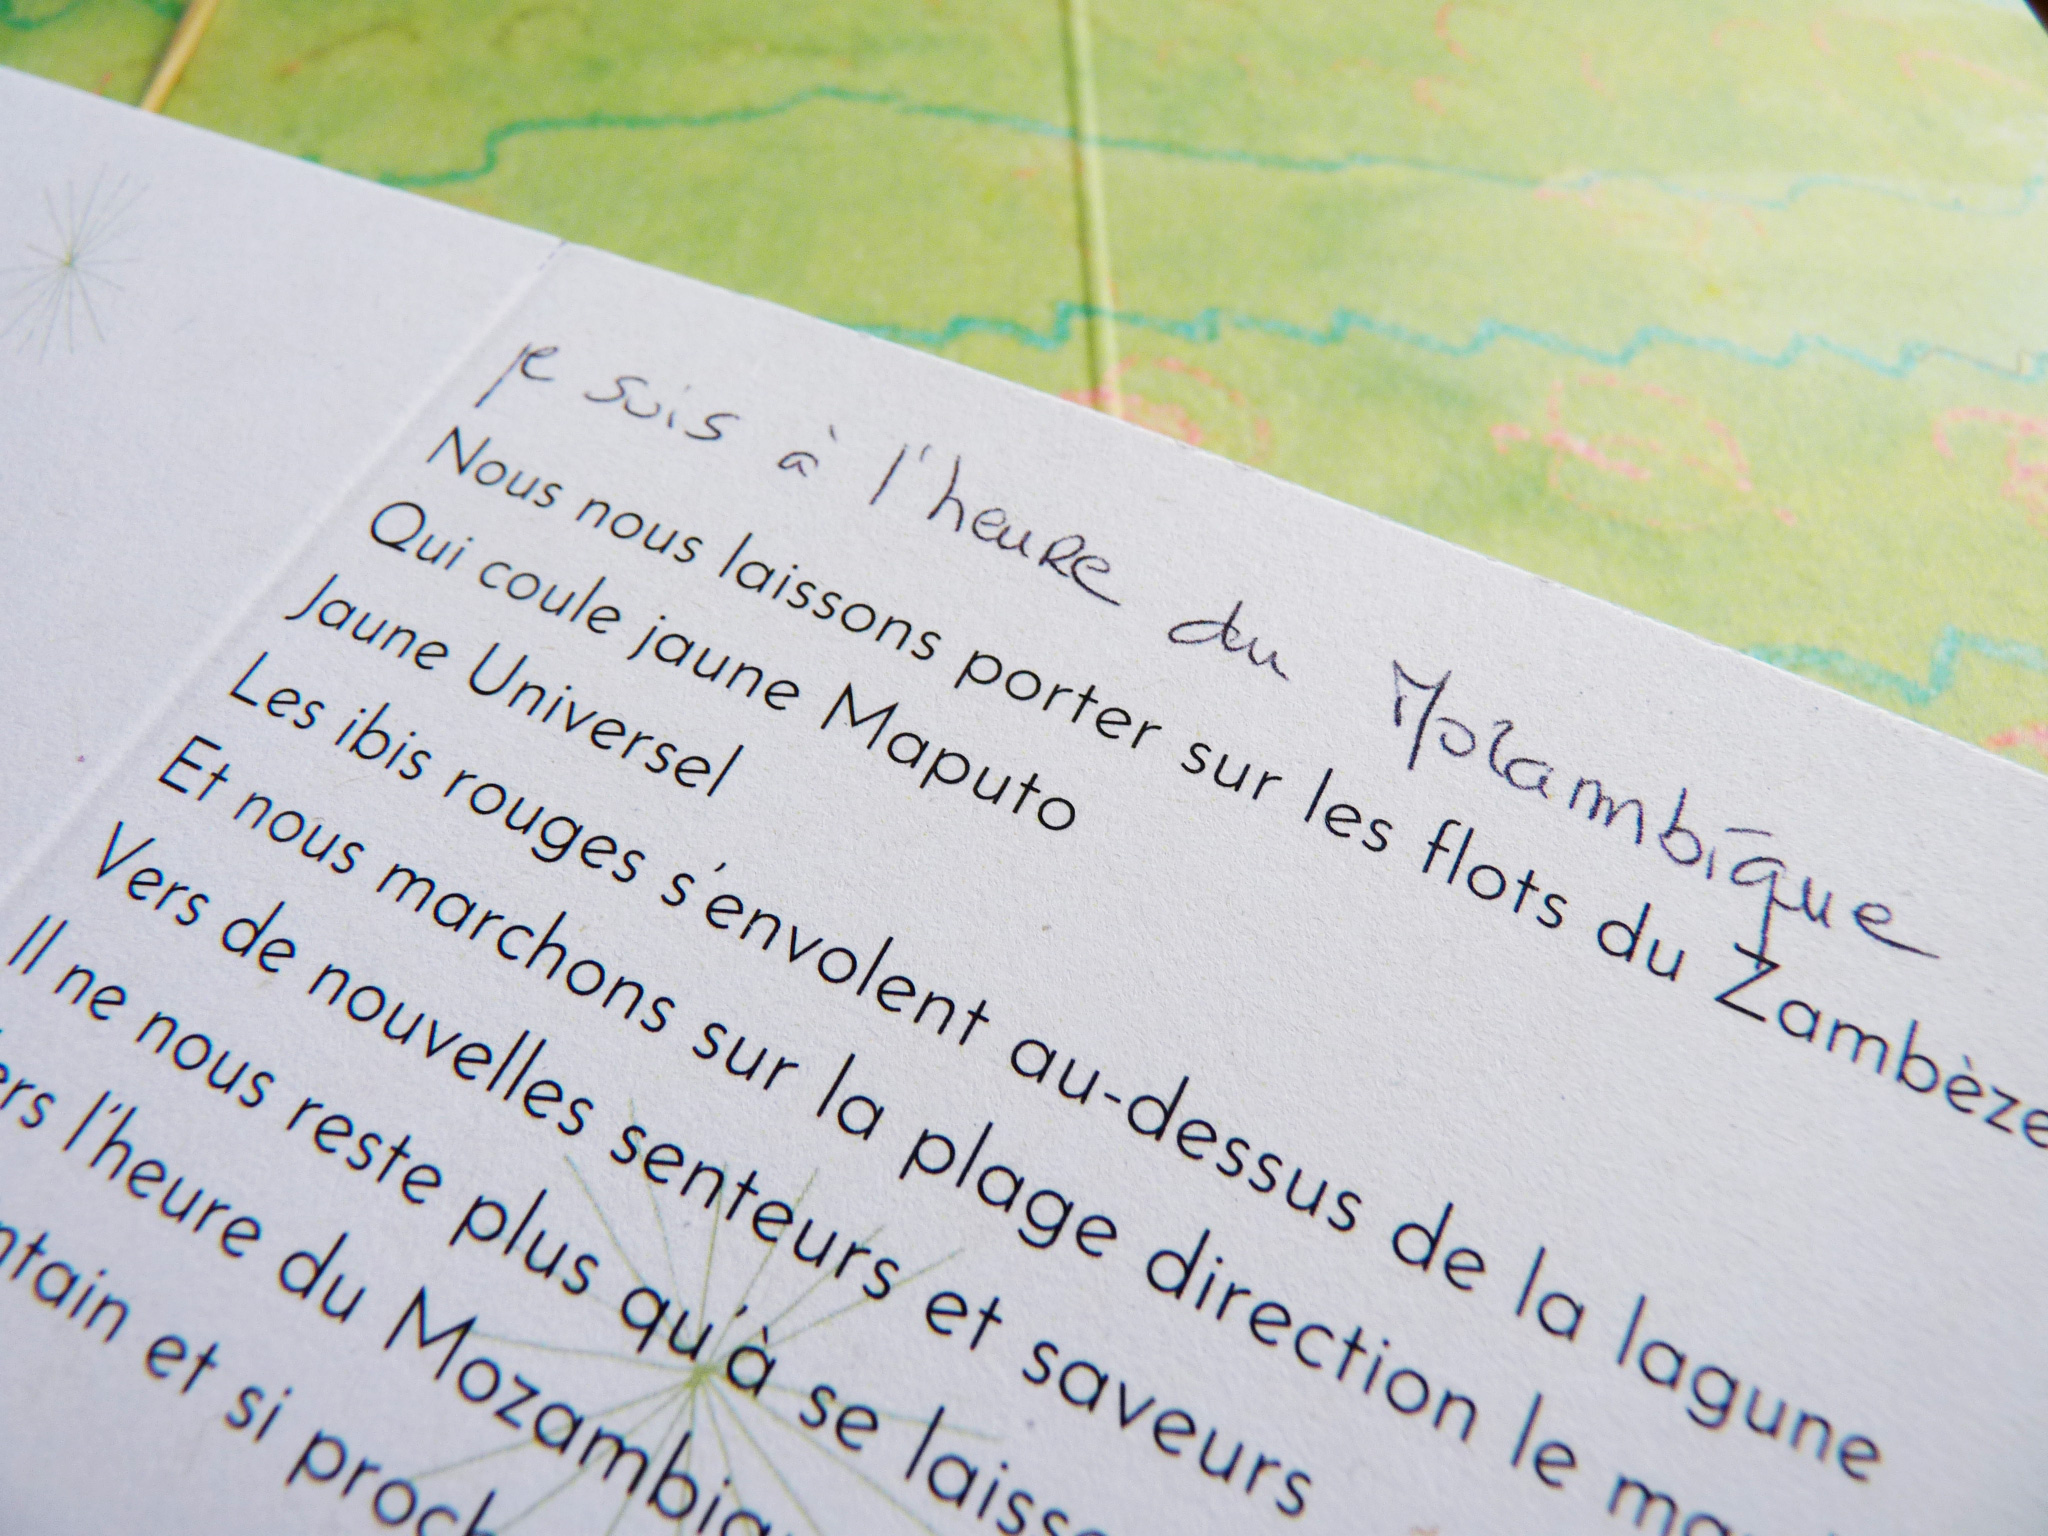 je suis à l'heure du Mozambique
Nous nous laissons porter sur les flots du Zambèze
Qui coule jaune Maputo
Jaune Universel
Les ibis rouges s'envolent au-dessus de la lagune
Et nous marchons sur la plage direction le
Vers de nouvelles senteurs et saveurs
Il ne nous reste plus qu'à se
l'heure du
et si